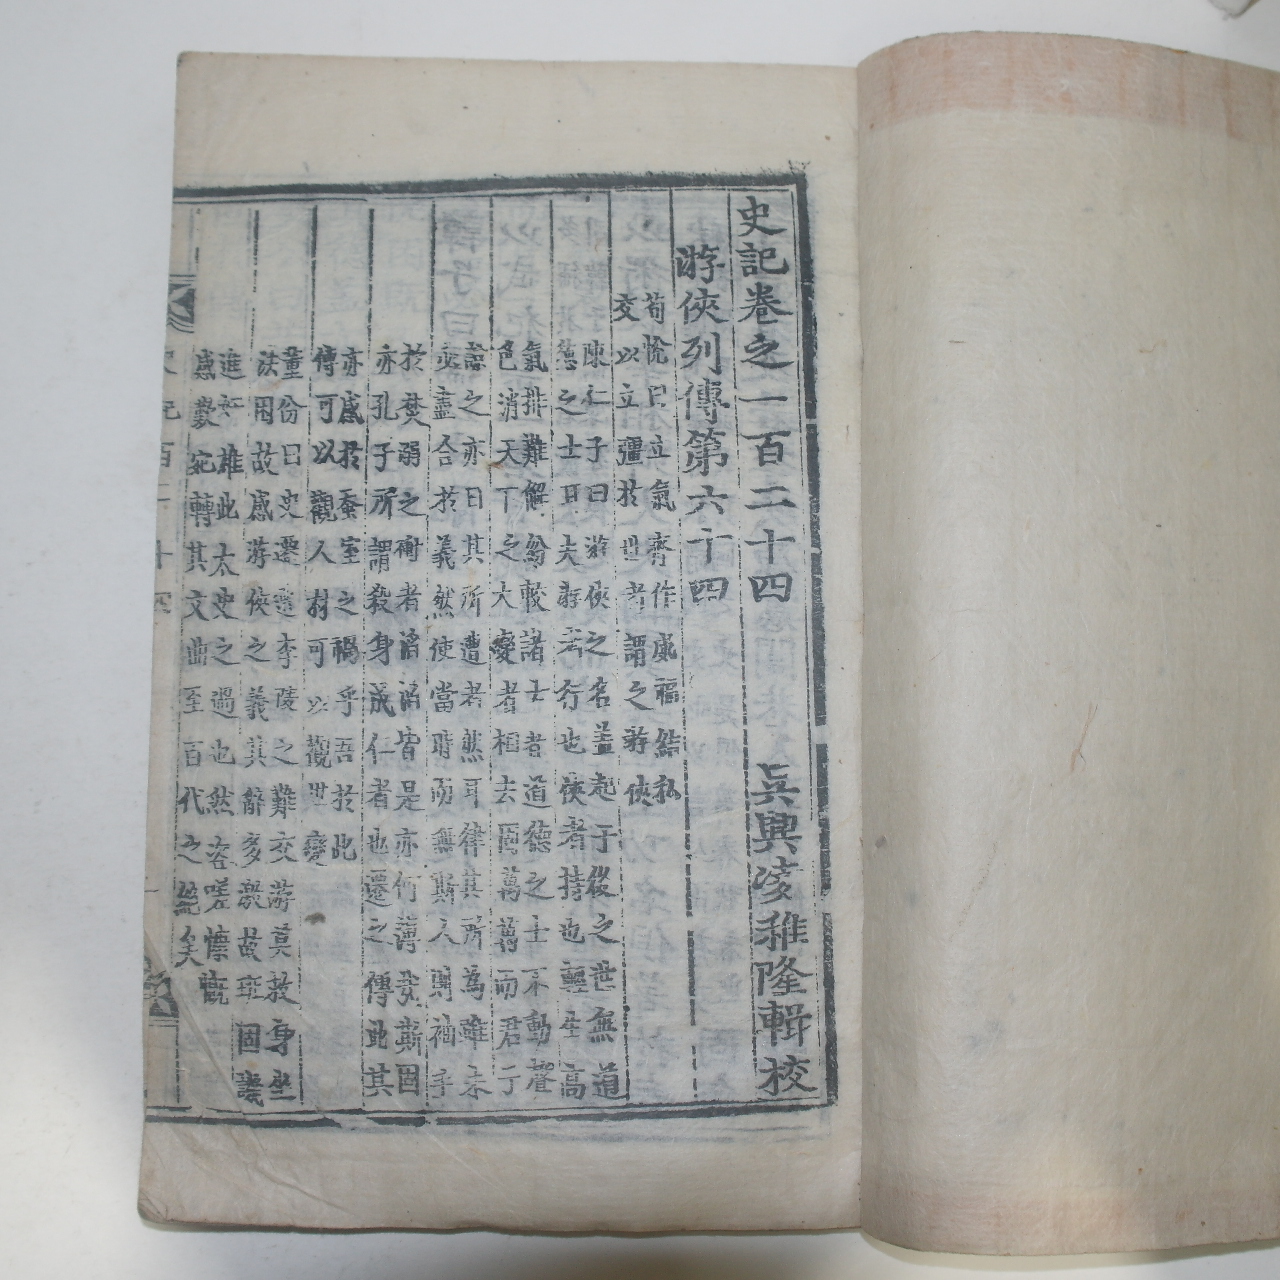 史記卷之一百二十四
吳興凌稚隆輯校
游俠列傳第六十四
荀悅曰立氣齊作威福結私
交以立彊於世者謂之游俠
陳仁子曰游俠之名蓋起于後之世無道
德之士耳夫游者行也俠者持也輕生高
氣排難解紛較諸士者道德之士不動聲
色消天下之大變者相去固萬萬而君子
論之亦曰其所遭者然耳律其所為雖未
必盡合於義然使當時而無斯人則袖手
於焚溺之衝者滔滔皆是亦何薄哉斯固
亦孔子所謂殺身成仁者也遷之傳此其
亦感於蠶室之禍乎吾於此
傳可以觀人材可以觀世變
董份曰史遷遭李陵之難交游莫救身坐
法困故感游俠之義其辭多激故班固譏
進奸雄此太史之過也然咨嗟慷慨
感歎宛轉其文曲至百代之絕矣
史記百二十四